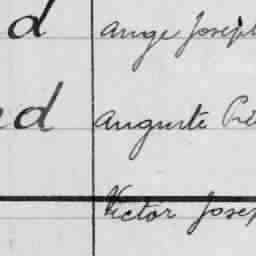 d Ange Joseph
d Auguste
Victor Jose